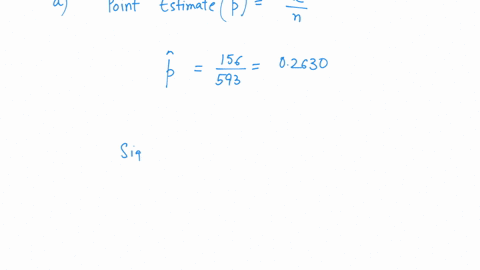 a) Point Estimate (p̂) = x/n
p̂ = 156/593 = 0.2630
Sig